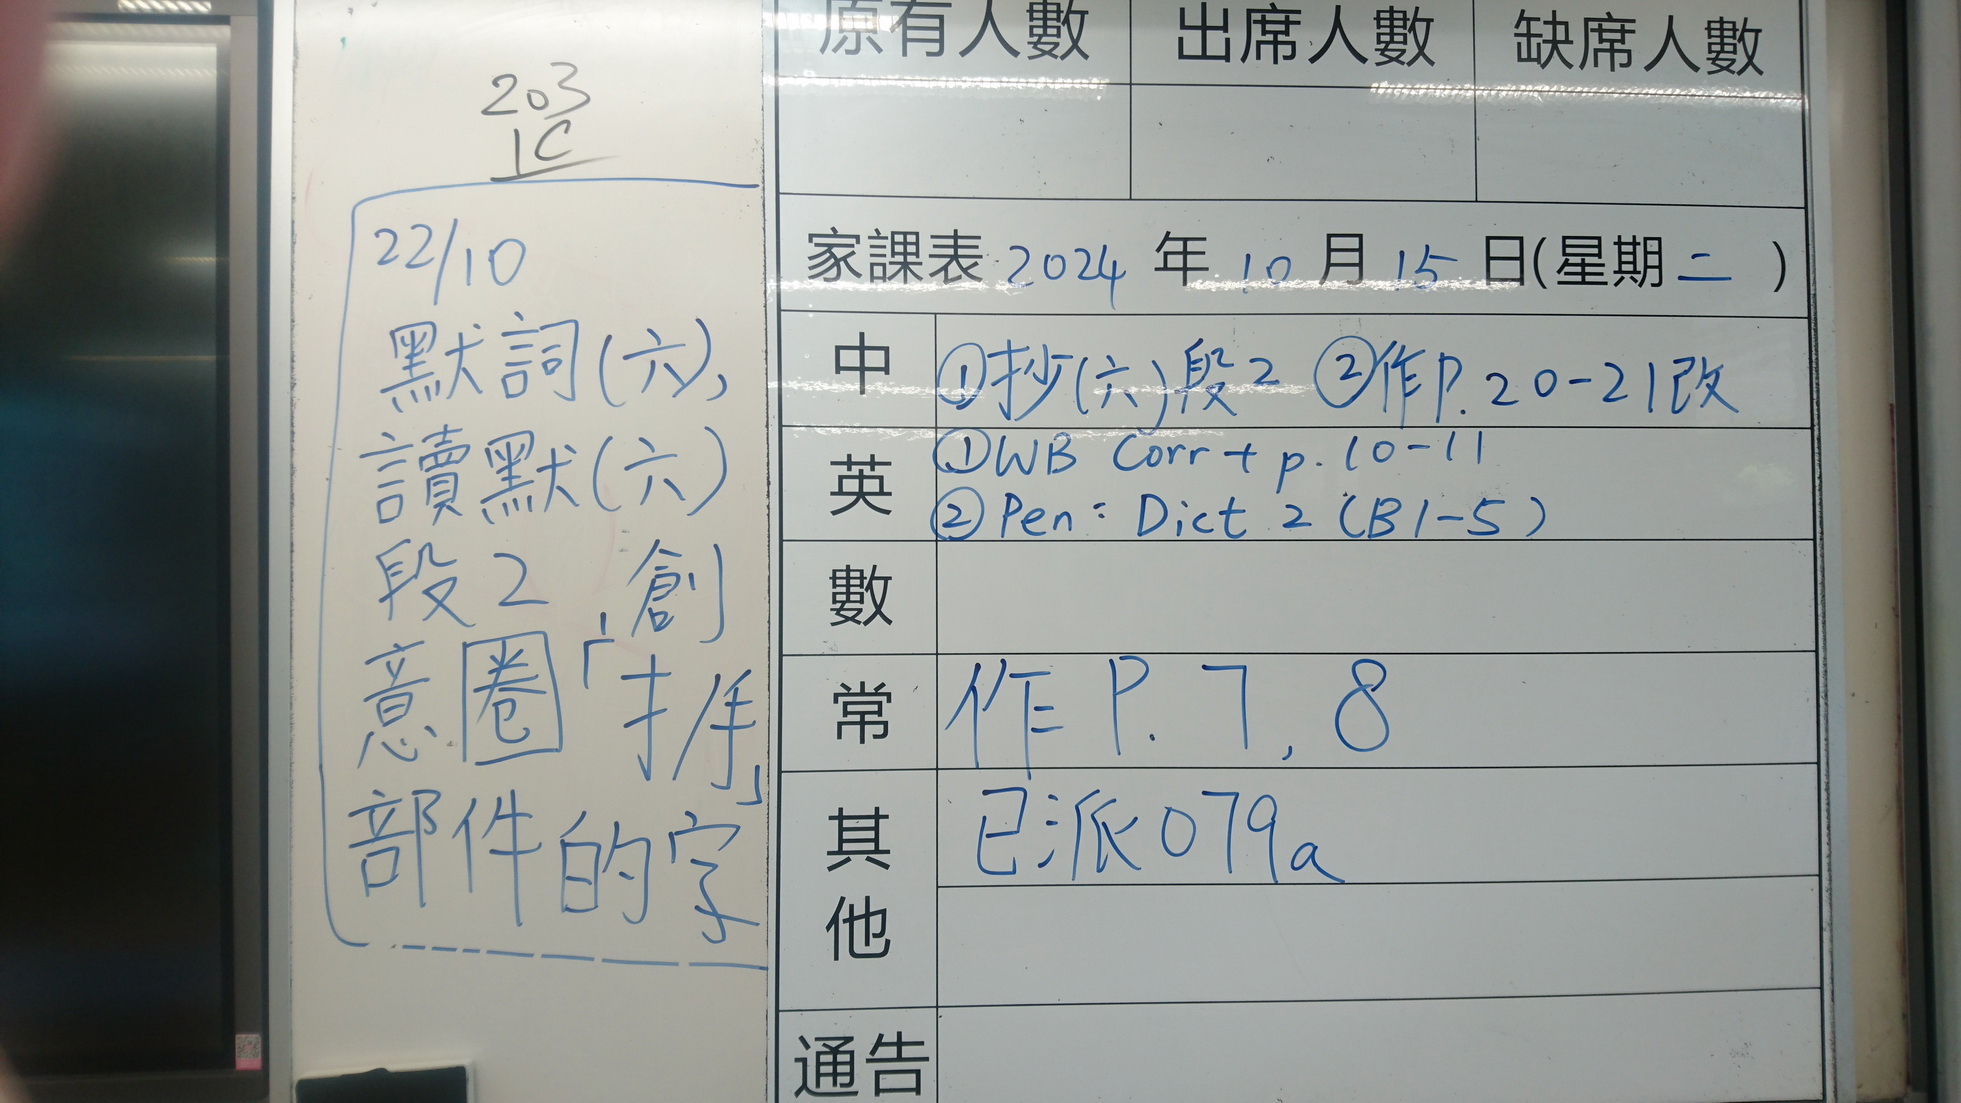 203
1C
22/10
默詞(六),
讀默(六)
段2,創
意圈「扌手」
部件的字
原有人數 出席人數 缺席人數
家課表 2024 年 10 月 15 日(星期 二 )
中 ①抄(六)段2 ②作P.20-21改
英 ①WB Corr + p.10-11
②Pen: Dict 2 (B1-5)
數
常 作 P.7,8
其他 已派079a
通告